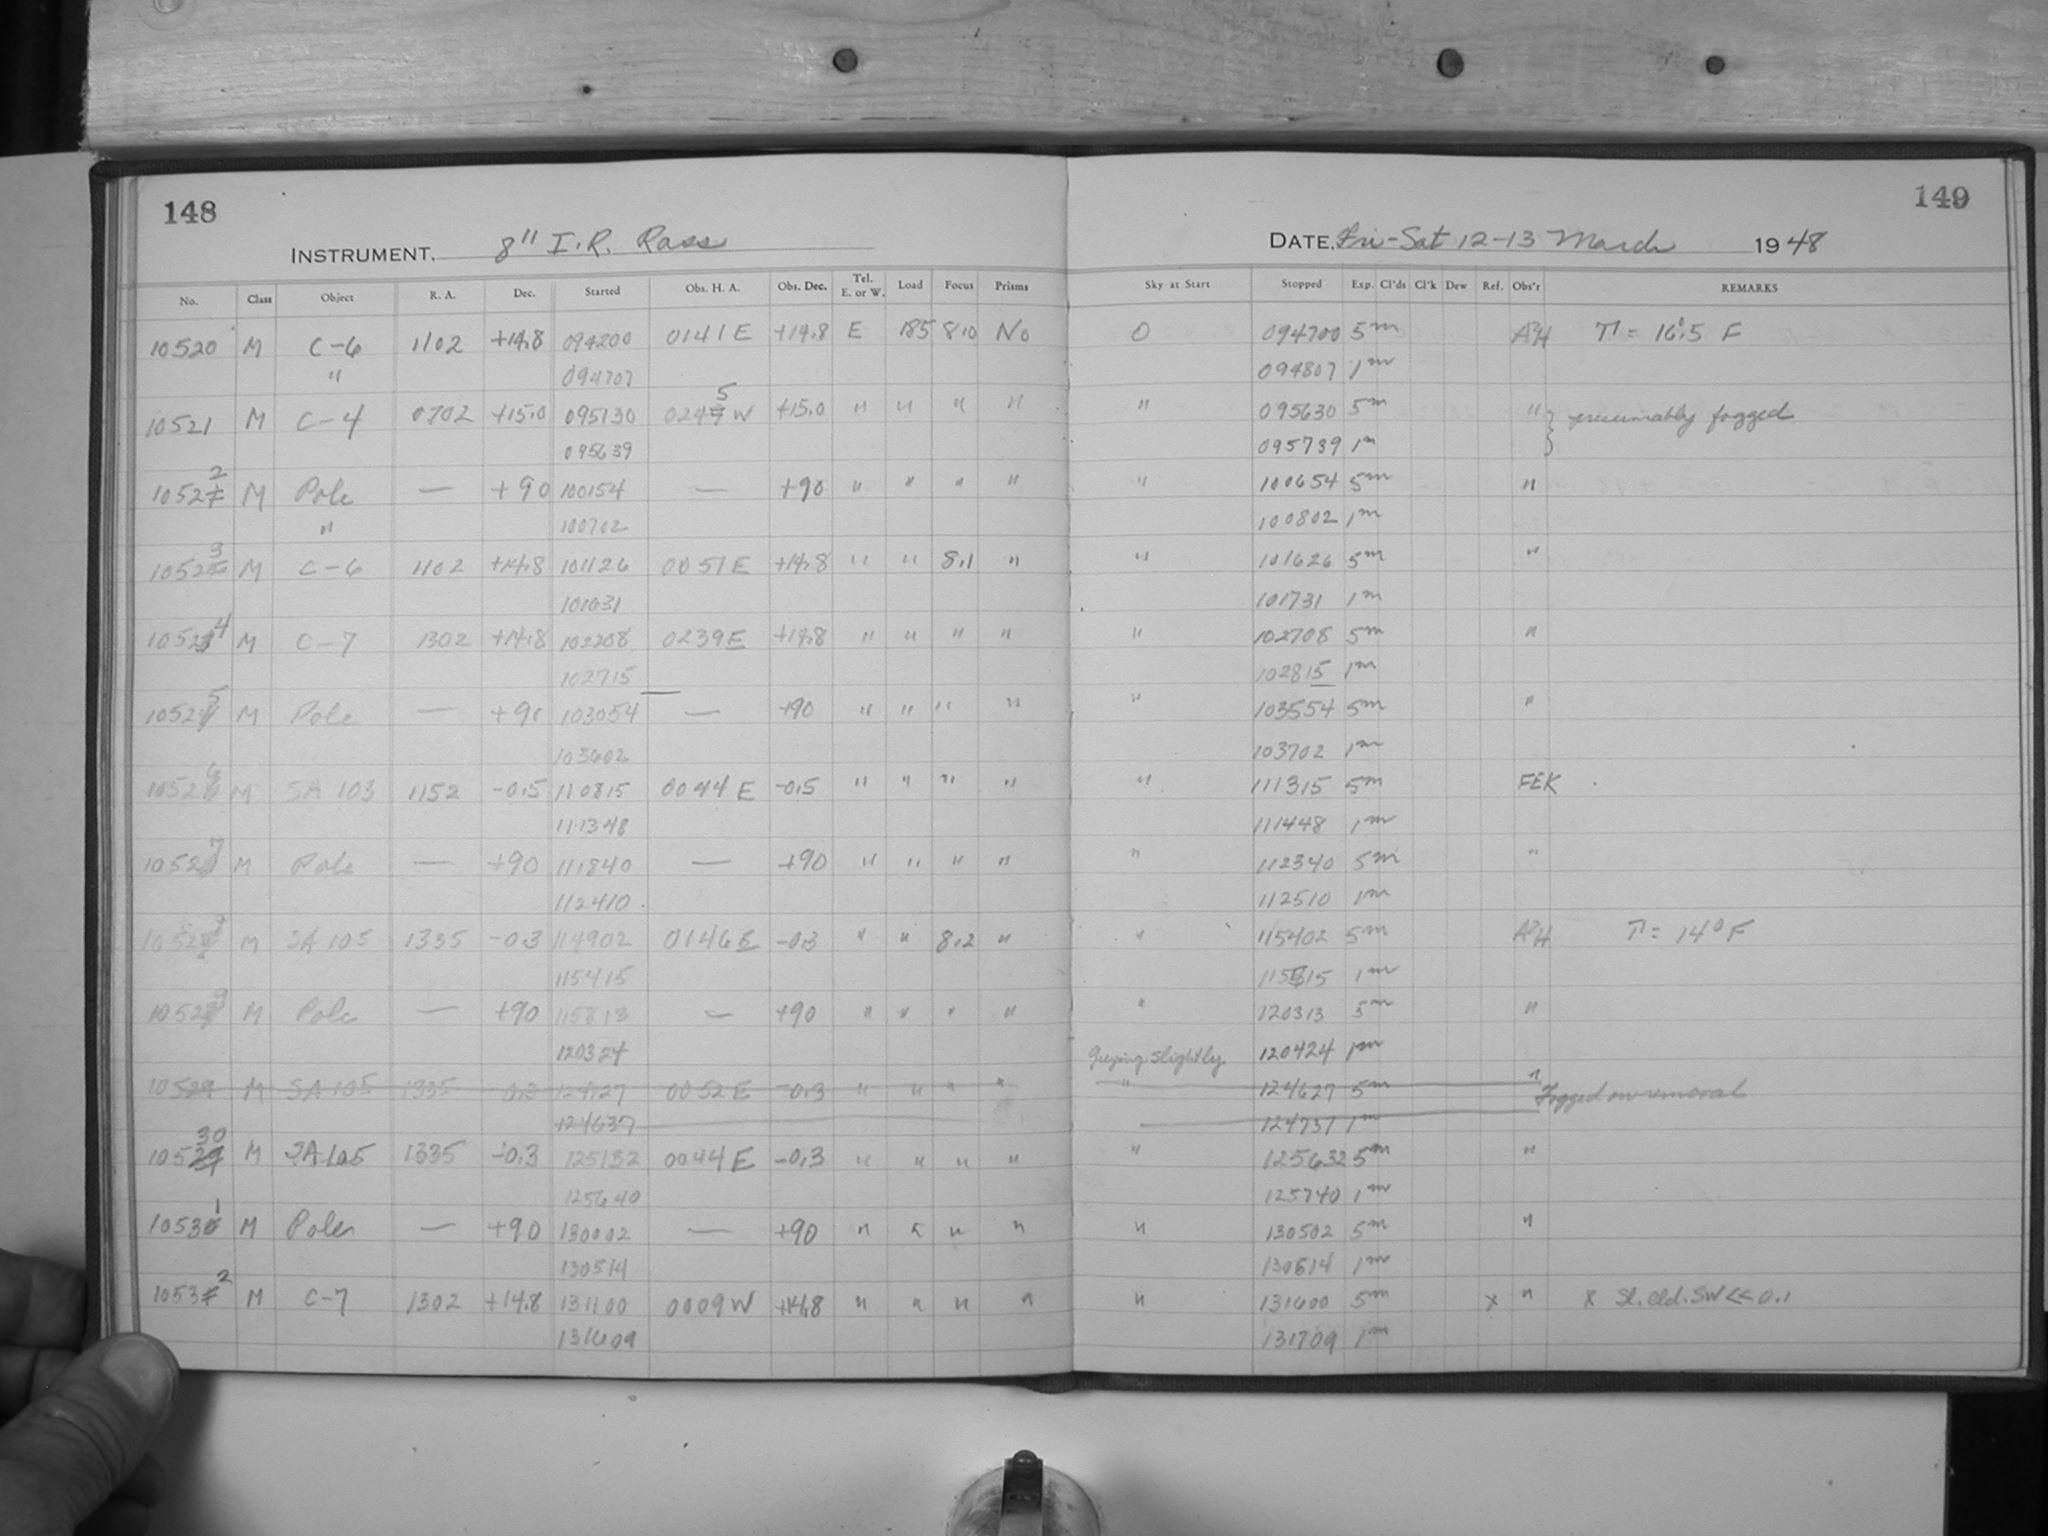 148
149
INSTRUMENT. 8" I.R. Ross
DATE. Fri-Sat 12-13 March 1948
No. Class Object R. A. Dec. Started Obs. H. A. Obs. Dec. Tel. E. or W. Load Focus Prisms Sky at Start Stopped Exp. Cl'ds Cl'k Dew Ref. Obs'r REMARKS
10520 M C-6 1102 +14.8 094200 0141 E +14.8 E 185 8.0 No O 094700 5m T = 16.5 F
" 094707 094807 1m
10521 M C-4 0702 +15.0 095130 0245 W +15.0 " " " " " 095630 5m " presumably fogged
095639 095739 1m
10522 M Pole — +90 100154 — +90 " " " " " 100654 5m "
" 100702 100802 1m
10523 M C-6 1102 +14.8 101126 0051 E +14.8 " " 8.1 " " 101626 5m "
101631 101731 1m
10524 M C-7 1302 +14.8 102208 0239 E +14.8 " " " " " 102708 5m "
102715 102815 1m
10525 M Pole — +90 103054 — +90 " " " " " 103554 5m "
103602 103702 1m
10526 M SA 103 1152 -0.5 110815 0044 E -0.5 " " " " " 111315 5m FEK
111348 111448 1m
10527 M Pole — +90 111840 — +90 " " " " " 112340 5m "
112410 112510 1m
10528 M SA 105 1335 -0.3 114902 0146 E -0.3 " " 8.2 " " 115402 5m T = 14° F
115415 115515 1m
10529 M Pole — +90 115813 — +90 " " " " " 120313 5m "
120324 Greying slightly 120424 1m
10529 M SA 105 1335 -0.3 124127 0052 E -0.3 " " " " " 124627 5m " Fogged on removal
124637 124737 1m
10530 M SA 105 1335 -0.3 125132 0044 E -0.3 " " " " " 125632 5m "
125640 125740 1m
10531 M Pole — +90 130002 — +90 " " " " " 130502 5m "
130514 130614 1m
10532 M C-7 1302 +14.8 131100 0009 W +14.8 " " " " " 131600 5m x " x Sl. cld. SW << 0.1
131609 131709 1m